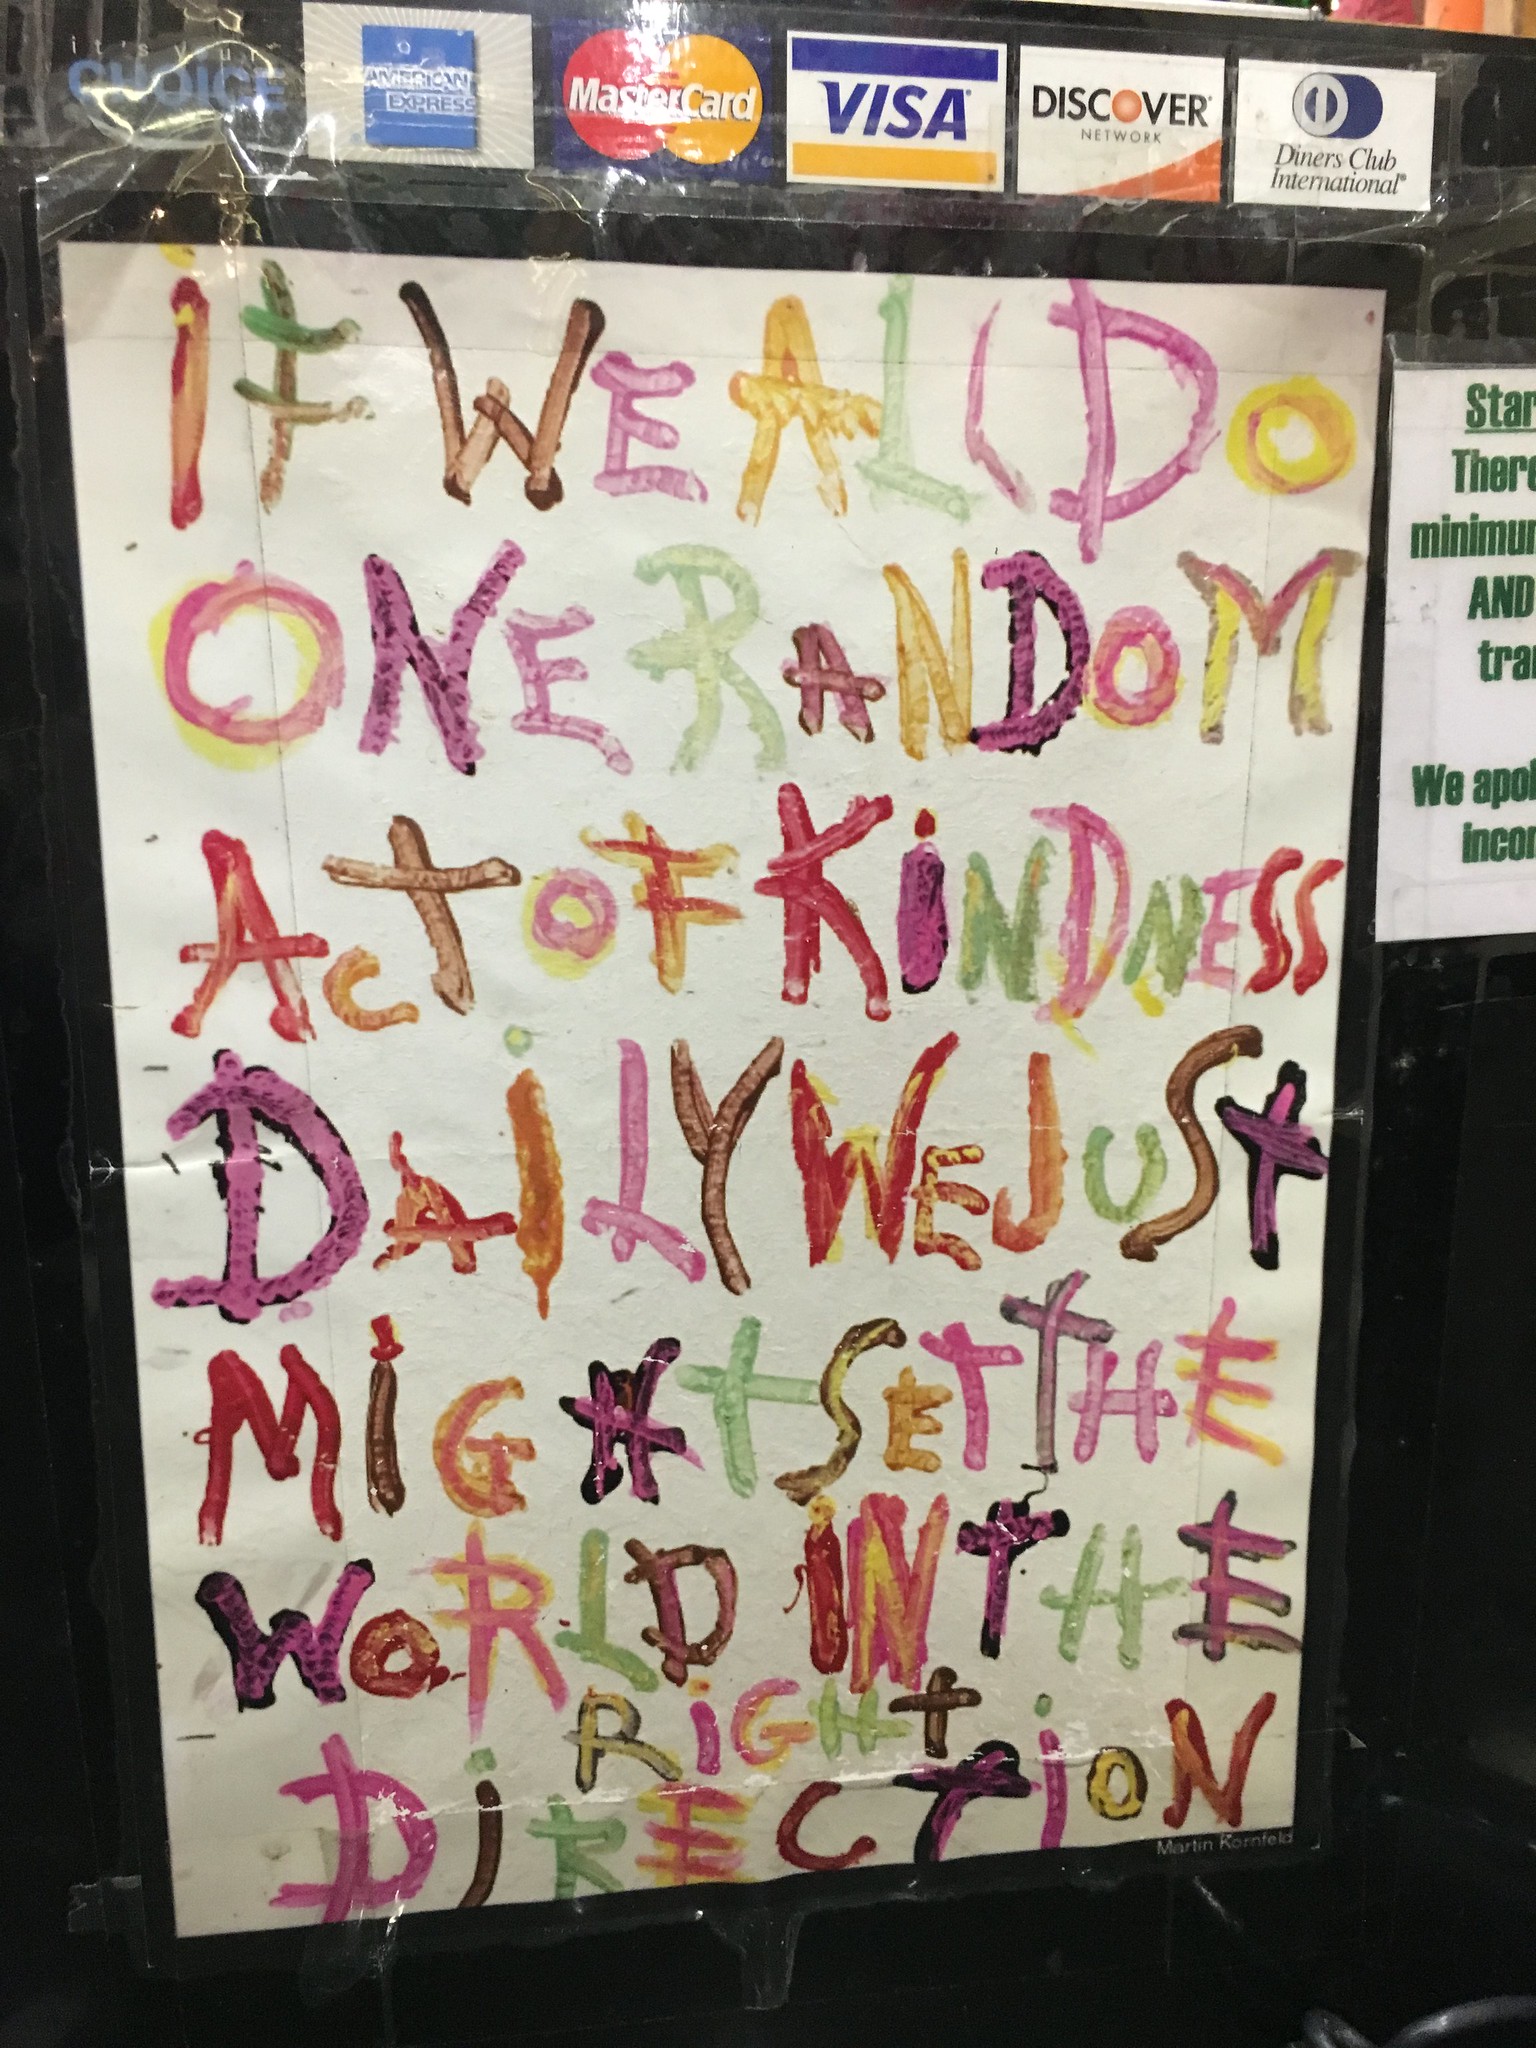 it's your
CHOICE
AMERICAN
EXPRESS
MasterCard
VISA
DISCOVER
NETWORK
Diners Club
International
iF WE ALL DO
ONE RANDOM
ACT OF KiNDNESS
DAiLY WE JUST
MiGHT SET THE
WORLD IN THE
RiGHT
DiRECTiON
Martin Kornfeld
Star
There
minimu
AND
tra
We apol
incon